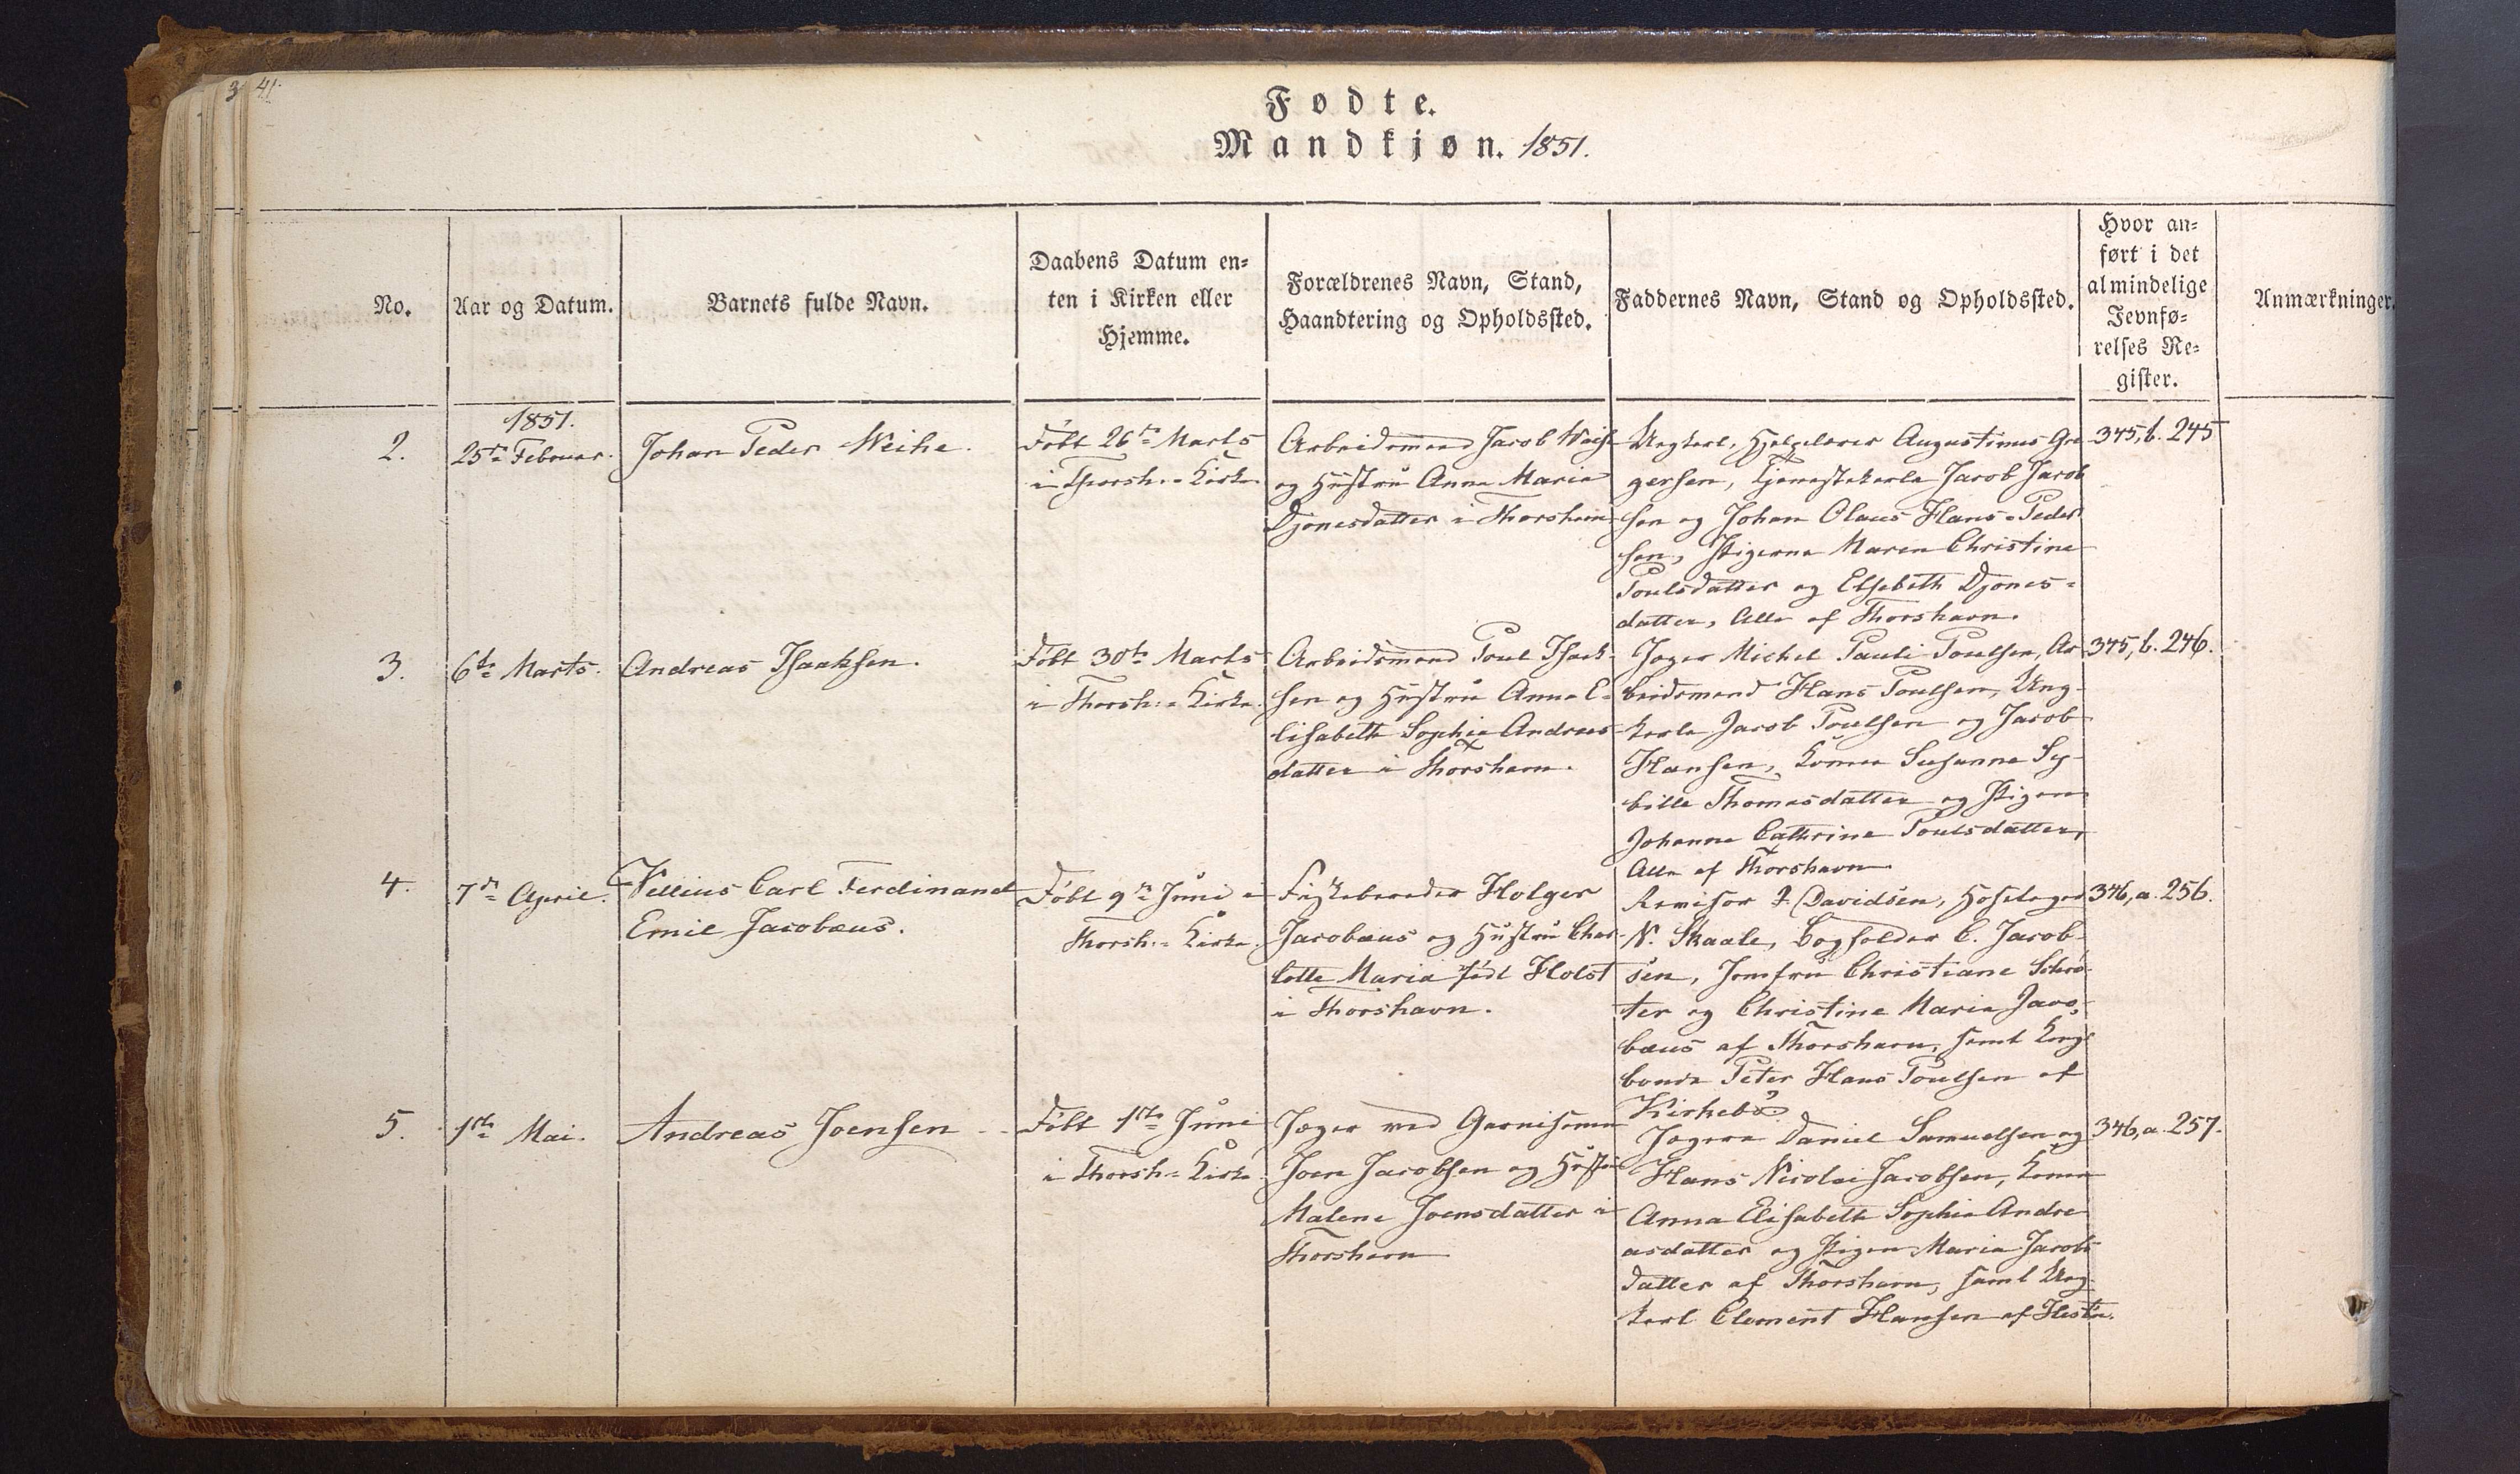 3 41.
Fødte.
Mandkjøn. 1851.
No.
Aar og Datum.
Barnets fulde Navn.
Daabens Datum en=
ten i Kirken eller
Hjemme.
Forældrenes Navn, Stand,
Haandtering og Opholdssted.
Faddernes Navn, Stand og Opholdssted.
Hvor an=
ført i det
almindelige
Jevnfø=
relses Re=
gister.
Anmærkninger.
2.
1851.
25de Februar.
Johan Peder Weihe.
Døbt 26de Marts
i Thorsh.= Kirke.
Arbeidsmand Jacob Weihe
og Hustru Anna Maria
Djonesdatter i Thorshavn
Ungkarl, Hjelpelærer Augustinus Gre
gersen, Tjenestekarle Jacob Jacob
sen og Johan Olaus Hans=Peder
sen, Pigerne Maren Christine
Poulsdatter og Elsebeth Djones=
datter, Alle af Thorshavn.
345, b. 245
3.
6te Marts.
Andreas Isaaksen.
Døbt 30te Marts
i Thorsh:= Kirke.
Arbeidsmand Poul Isak-
sen og Hustru Anna E=
lisabeth Sophia Andreas
datter i Thorshavn.
Jæger Michel Pauli Poulsen, Ar
beidsmand Hans Poulsen, Ung-
karle Jacob Poulsen og Jacob
Hansen, Konen Susanne Sy-
bille Thomasdatter og Pigen
Johanne Cathrine Poulsdatter,
Alle af Thorshavn
345, b. 246.
4.
7de April.
Vellius Carl Ferdinand
Emil Jacobæus.
Døbt 9de Juni i
Thorsh:= Kirke.
Fiskebereder Holger
Jacobæus og Hustru Char-
lotte Maria født Holst
i Thorshavn.
Revisor P. Davidsen, Hosetager
N. Skaale, Bogholder C. Jacob-
sen, Jomfru Christiane Schrø-
ter og Christine Maria Jaco-
bæus af Thorshavn, samt Kongs
bonde Peter Hans Poulsen af
Kirkebø.
346, a. 256.
5.
1ste Mai.
Andreas Joensen
Døbt 1ste Juni
i Thorsh:= Kirke.
Jæger ved Garnisonen
Joen Jacobsen og Hustru
Malene Joensdatter i
Thorshavn
Jægere Daniel Samuelsen og
Hans Nicolai Jacobsen, Konen
Anna Elisabeth Sophia Andre
asdatter og Pigen Maria Jacobs
datter af Thorshavn, samt Ung-
karl Clement Hansen af Hestø.
346, a. 257.